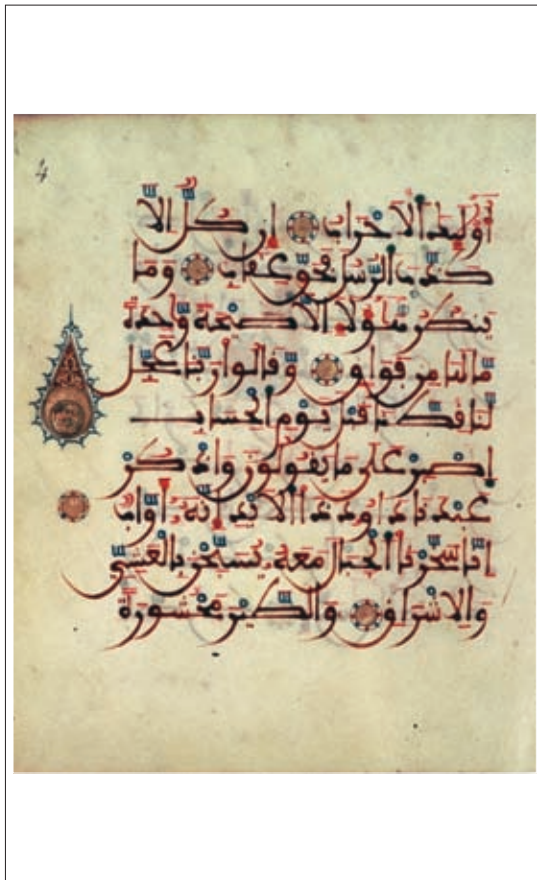 4
أُوْلَٰئِكَ الْأَحْزَابُ إِن كُلٌّ إِلَّا
كَذَّبَ الرُّسُلَ فَحَقَّ عِقَابِ وَمَا
يَنظُرُ هَٰؤُلَاءِ إِلَّا صَيْحَةً وَٰحِدَةً
مَّا لَهَا مِن فَوَاقٍ وَقَالُوا رَبَّنَا عَجِّل
لَّنَا قِطَّنَا قَبْلَ يَوْمِ الْحِسَابِ
اِصْبِرْ عَلَىٰ مَا يَقُولُونَ وَاذْكُرْ
عَبْدَنَا دَاوُدَ ذَا الْأَيْدِ إِنَّهُ أَوَّابٌ
إِنَّا سَخَّرْنَا الْجِبَالَ مَعَهُ يُسَبِّحْنَ بِالْعَشِيِّ
وَالْإِشْرَاقِ وَالطَّيْرَ مَحْشُورَةً